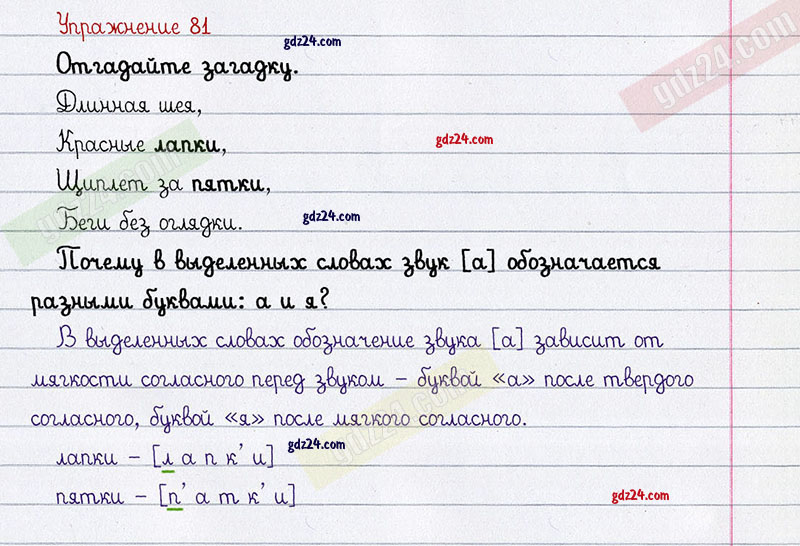 Упражнение 81
gdz24.com
Отгадайте загадку.
gdz24.com
Длинная шея,
Красные лапки,
gdz24.com
gdz24.com
Щиплет за пятки,
Беги без оглядки.
gdz24.com
Почему в выделенных словах звук [а] обозначается
разными буквами: а и я?
В выделенных словах обозначение звука [а] зависит от
мягкости согласного перед звуком – буквой «а» после твердого
согласного, буквой «я» после мягкого согласного.
gdz24.com
лапки – [л а п к' и]
gdz24.com
пятки – [п' а т к' и]
gdz24.com